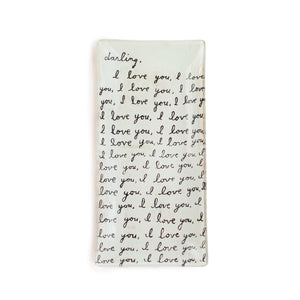 darling,
I love you, I love
you, I love you, I love
you, I love you, I love you,
I love you, I love you, I
love you, I love you, I love
you, I love you, I love you,
I love you, I love you, I
love you, I love you, I love
love you, I love you, I love
you, I love you, I love you, I
love you, I love you, I love
you, I love you, I love you,
I love you, I love you, I
love you, I love you, I
love you, I love you, I love